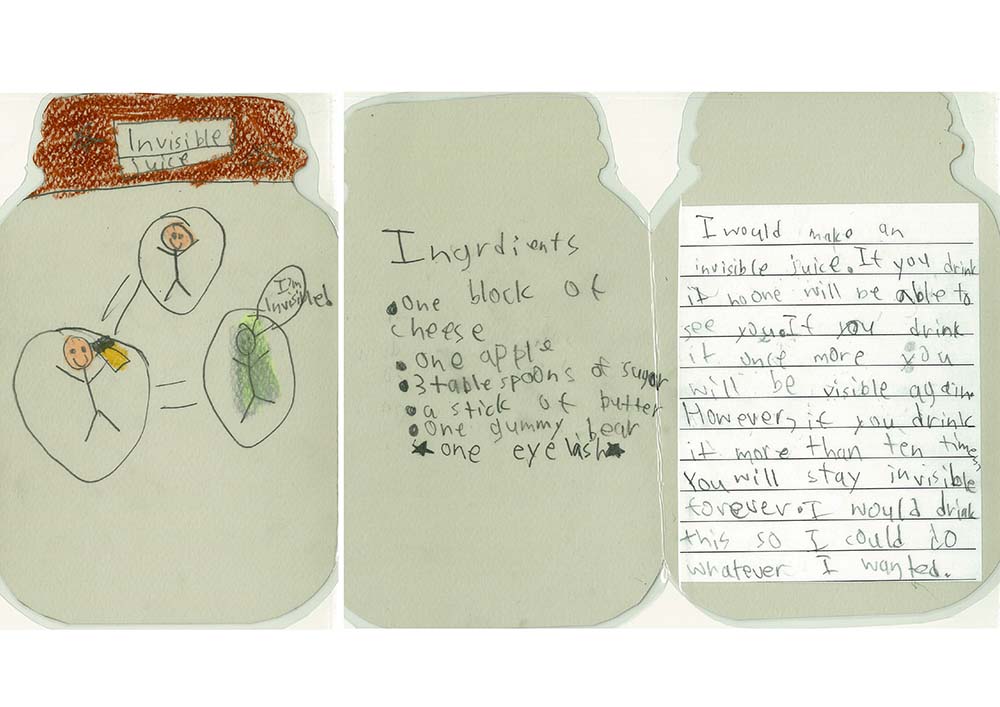 Invisible
juice
I'm
Invisibled
Ingrdients
•one block of
cheese
•one apple
•3 tablespoons of sugar
•a stick of butter
•One gummy bear
★one eyelash★
I would make an
invisible juice. If you drink
it no one will be able to
see you. If you drink
it once more you
will be visible again.
However, if you drink
it more than ten times
you will stay invisible
forever. I would drink
this so I could do
whatever I wanted.